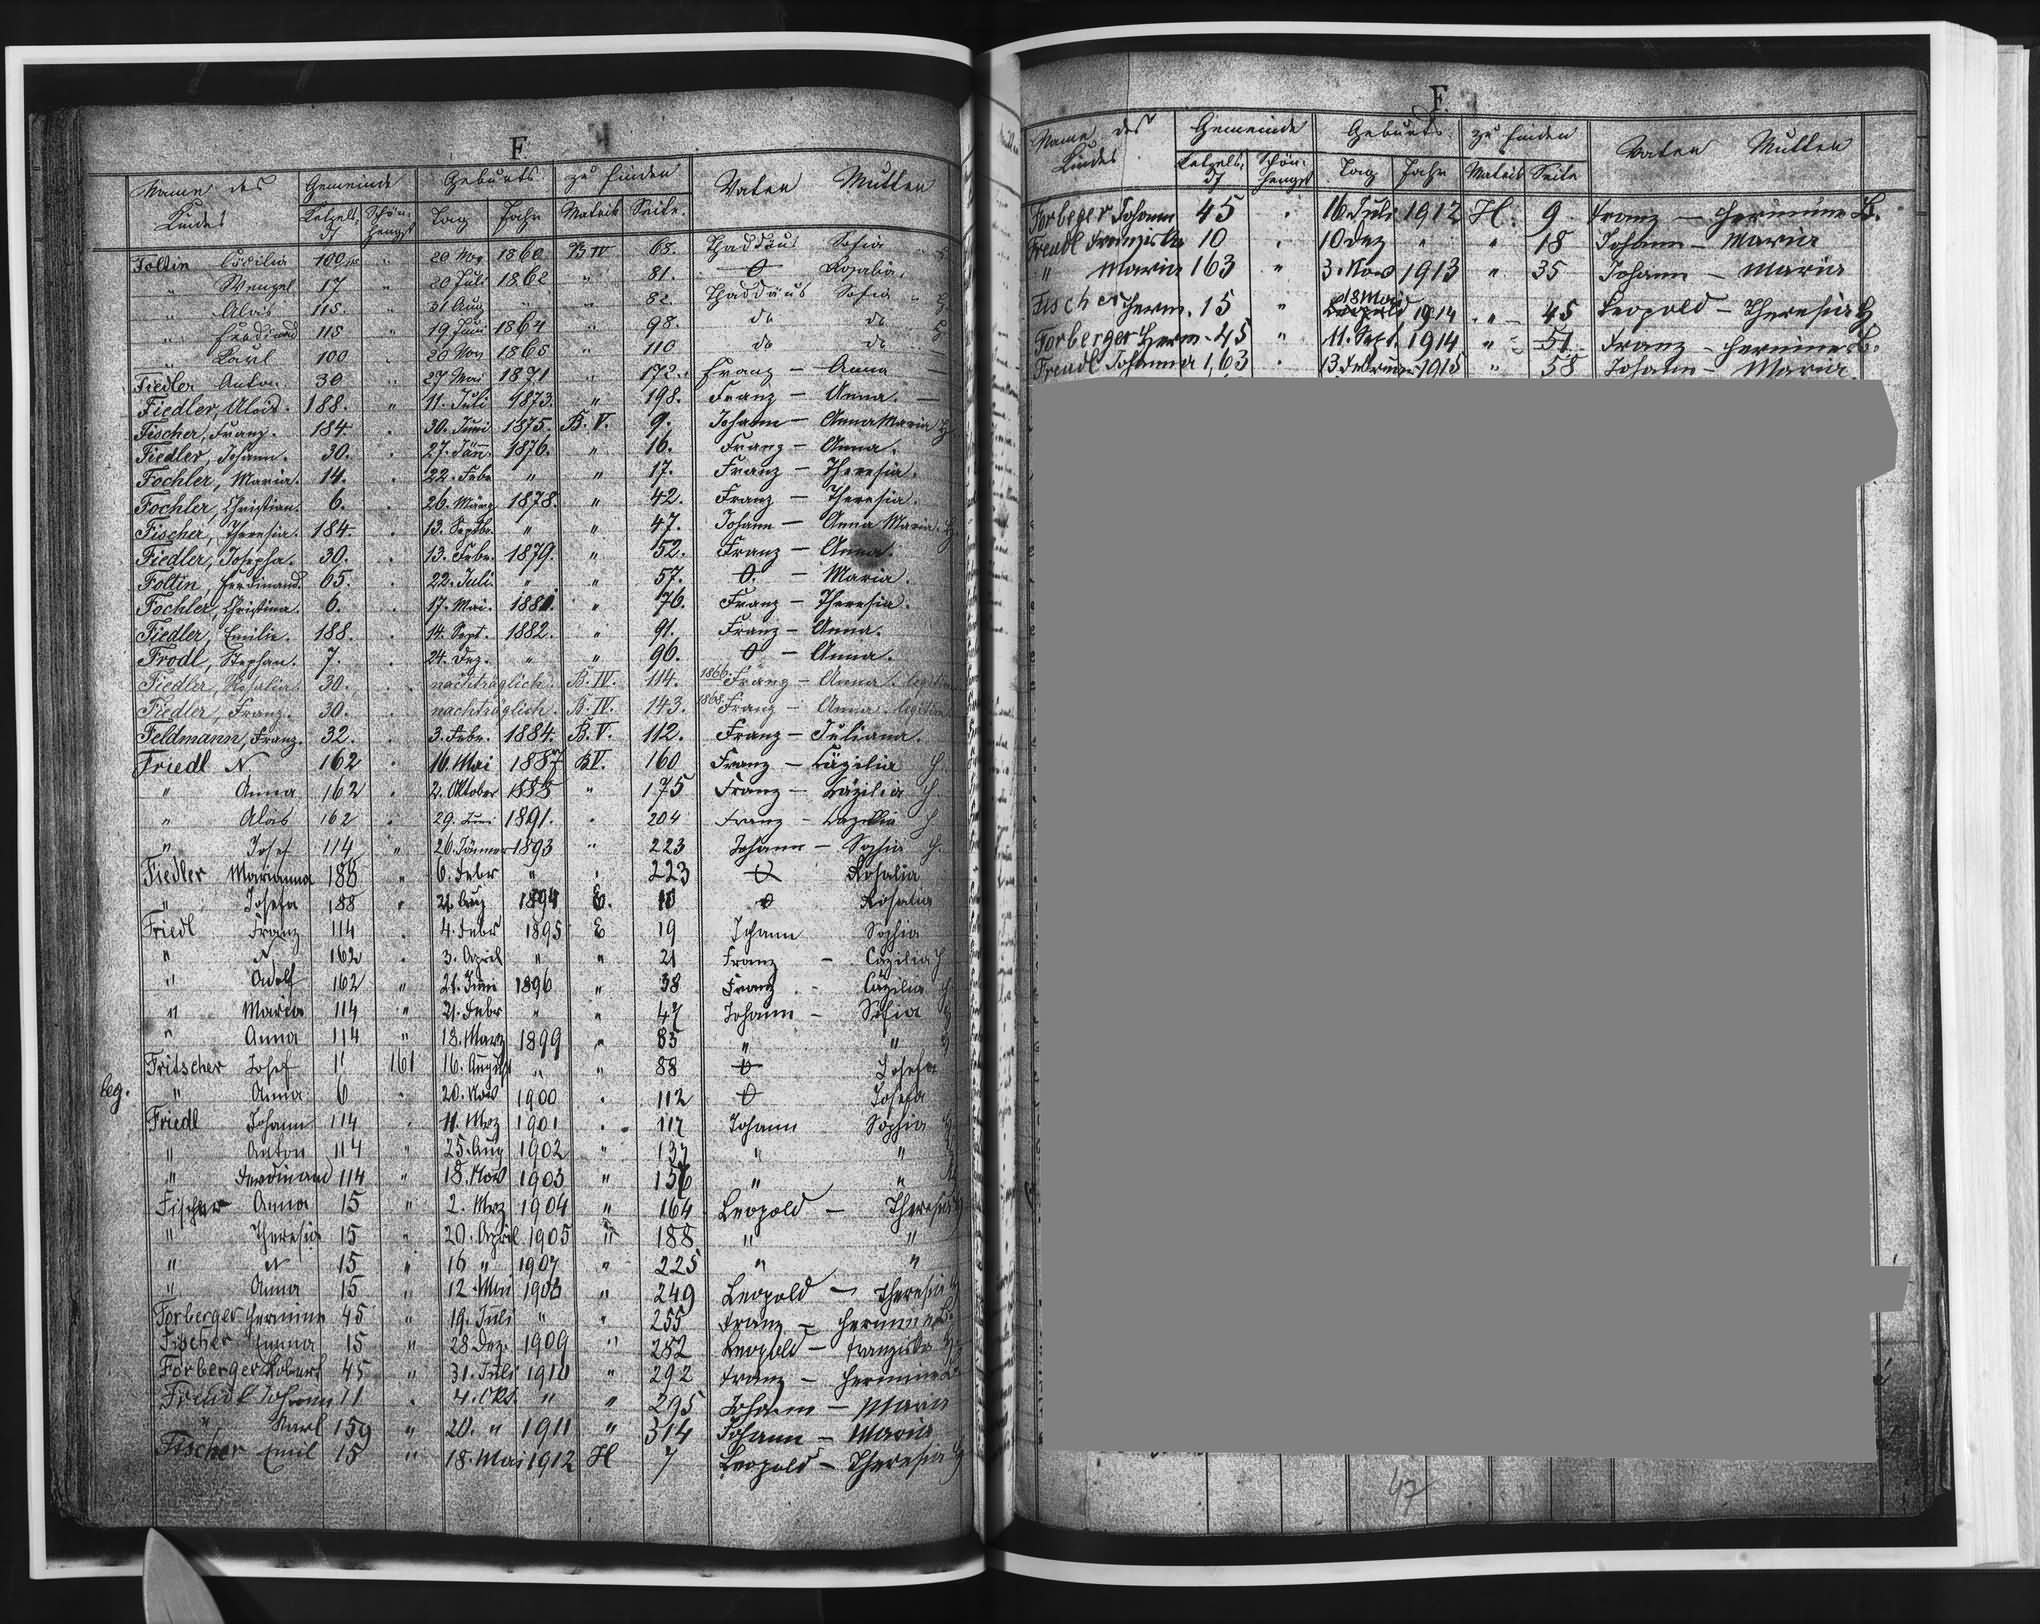 F
Name des Kindes Gemeinde Geburts zu finden Vater Mutter
Ketzelsdf Schönhengst Tag Jahr Matrik Seite.
Foltin Cäcilia 100 " 20 Nov 1860 B IV 68. Thaddäus Sofia
" Wenzel 17 " 20 Juli 1862 " 81. O Rosalia
" Alois 115. " 31 Aug " " 82. Thaddäus Sofia
" Ferdinand 115 " 19 Juni 1864 " 98. do do
" Karl 100 20 Nov 1865 " 110 do do
Fiedler Anton 30 " 27 Mai 1871 " 172. Franz — Anna —
Fiedler, Alois. 188. " 11. Juli 1873. " 198. Franz — Anna. —
Fischer, Franz. 184. . 30. Juni 1875. B. V. 9. Johann — Anna Maria
Fiedler, Johann. 30. . 27. Jän. 1876. " 16. Franz — Anna.
Fochler, Maria. 14. . 22. Febr. " " 17. Franz — Theresia.
Fochler, Christian. 6. . 26. März 1878. " 42. Franz — Theresia.
Fischer, Theresia. 184. . 13. Septbr. " " 47. Johann — Anna Maria.
Fiedler, Josepha. 30. . 13. Febr. 1879. " 52. Franz — Anna.
Foltin, Ferdinand. 65. . 22. Juli " " 57. O. — Maria.
Fochler, Christina. 6. . 17. Mai. 1881. " 76. Franz — Theresia.
Fiedler, Emilie. 188. . 14. Sept. 1882. " 91. Franz — Anna.
Frodl, Stephan. 7. . 24. Dez. " " 96. O — Anna.
Fiedler, Rosalia. 30. . nachträglich. B. IV. 114. 1866. Franz — Anna.
Fiedler, Franz. 30. . nachträglich. B. IV. 143. 1868. Franz — Anna
Feldmann, Franz. 32. . 3. Febr. 1884. B. V. 112. Franz — Juliana.
Friedl N 162 . 16. Mai 1887 B V. 160 Franz — Cäzilia H
" Anna 162 . 2. Oktober 1888 " 175 Franz — Cäzilia H
" Alois 162 . 29. Juni 1891. " 204 Franz — Cäzilia H
" Josef 114 " 26. Jänner 1893 " 223 Johann — Sophia H.
Fiedler Marianna 188 " 6. Febr " . 223 O Rosalia
" Josefa 188 " 21. Aug 1894 E. 10 O Rosalia
Friedl Franz 114 . 4. Febr 1895 E 19 Johann Sophia
" N 162 . 3. April " " 21 Franz - Cäzilia H
" Adolf 162 " 21. Juni 1896 " 38 Franz - Cäzilia H
" Maria 114 " 21. Febr " " 47 Johann — Sofia
" Anna 114 " 13. März 1899 " 83 " "
Fritscher Josef 1' 161 16. August " " 88 O Josefa
leg. " Anna 6 . 20. Nov 1900 . 112 O Josefa
Friedl Johann 114 . 11. Mrz 1901 . 117 Johann Sophia
" Anton 114 " 25. Aug 1902 " 137 " "
" Ferdinand 114 " 18. Nov 1903 " 156 " "
Fischer Anna 15 " 2. Mrz 1904 " 164 Leopold — Theresia
" Theresia 15 " 20. April 1905 " 188 " "
" N 15 " 16 " 1907 " 225 " "
" Anna 15 " 12. Mai 1908 " 249 Leopold — Theresia
Forberger Hermine 45 " 19. Juli " " 255 Franz — Hermine
Fischer Emma 15 " 28 Dez. 1909 " 282 Leopold — Franziska
Forberger Robert 45 " 31. Juli 1910 " 292 Franz — Hermine
Freudl Johann 11 . 4. Okt. " " 295 Johann — Maria
" Karl 159 " 20. " 1911 " 314 Johann — Maria
Fischer Emil 15 " 18. Mai 1912 H 7 Leopold — Theresia
F.
Name des Kindes Gemeinde Geburts zu finden Vater Mutter
Ketzelsdf Schönhengst Tag Jahr Matrik Seite
Forberger Johann 45 " 16. Juli 1912 H. 9 Franz — Hermine B.
Freudl Franziska 10 " 10 Dez " " 18 Johann — Maria
" Maria 163 " 3. Nov 1913 " 35 Johann — Maria
Fischer Herm. 15 " 18 Mai 1914 " 45 Leopold — Theresia H
Forberger Herm. 45 " 11. Sept. 1914 " 51 Franz — Hermine B.
Freudl Johanna 163 " 13 Februar 1915 " 58 Johann — Maria.
47